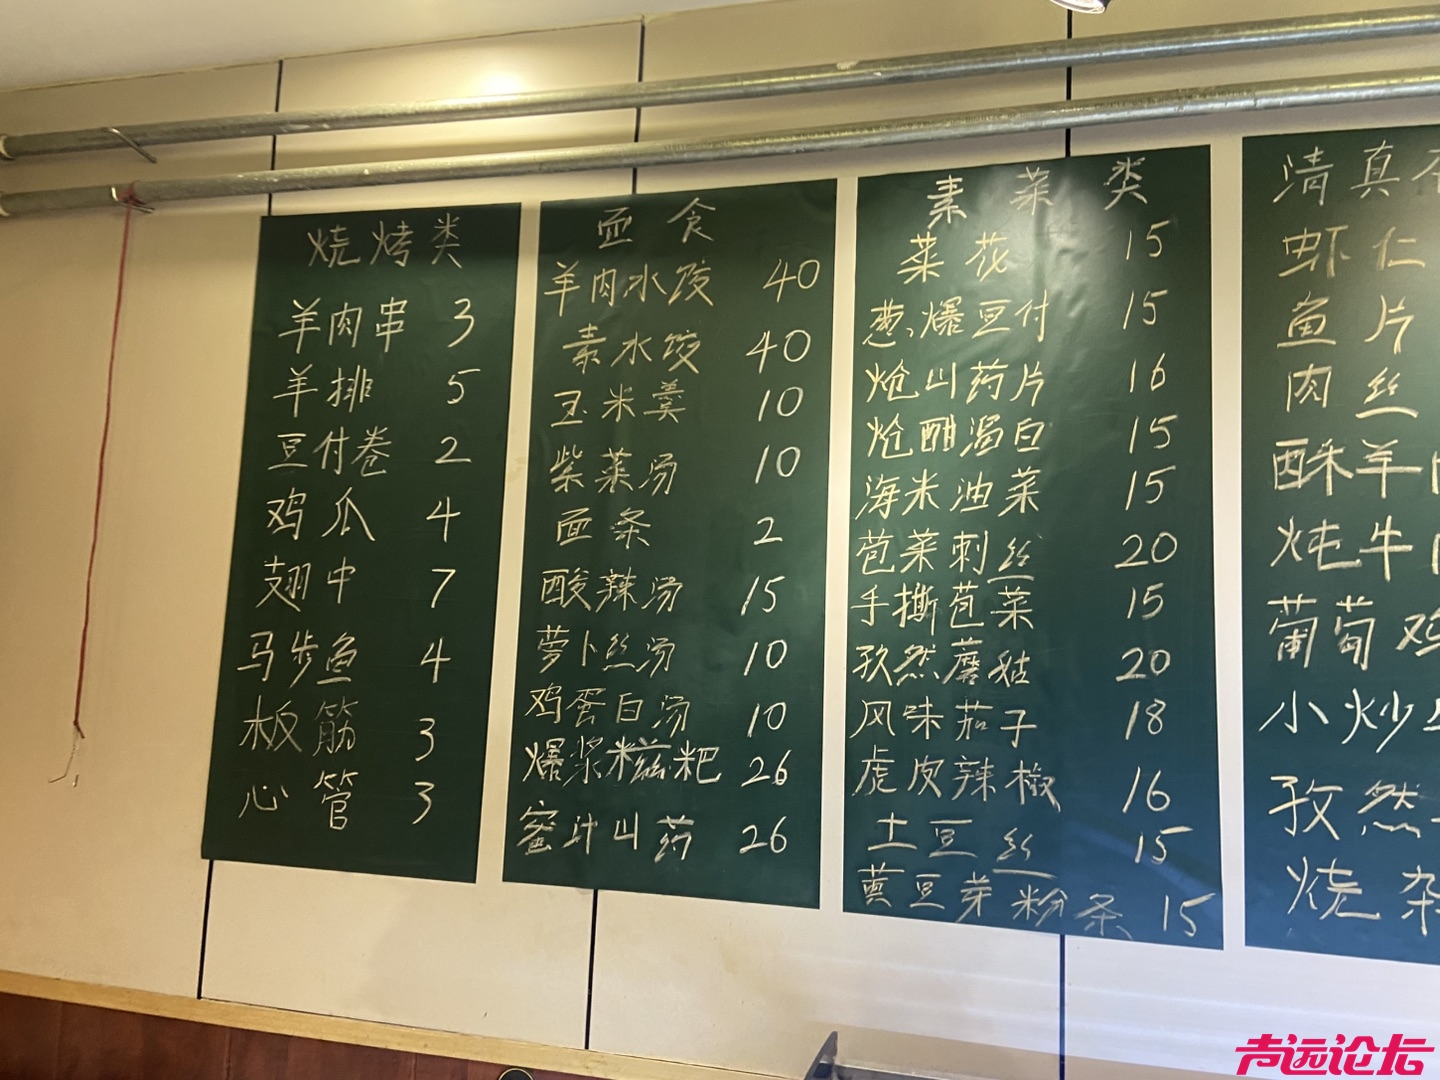 烧烤类
羊肉串 3
羊排 5
豆付卷 2
鸡爪 4
翅中 7
马步鱼 4
板筋 3
心管 3
面食
羊肉水饺 40
素水饺 40
玉米羹 10
紫菜汤 10
面条 2
酸辣汤 15
萝卜丝汤 10
鸡蛋白汤 10
爆浆糍粑 26
蜜汁山药 26
素菜类
菜花 15
葱爆豆付 15
炝山药片 16
炝酣汤白 15
海米油菜 15
苞菜刺丝 20
手撕苞菜 15
孜然蘑菇 20
风味茄子 18
虎皮辣椒 16
土豆丝 15
黄豆芽粉条 15
清真
虾仁
鱼片
肉丝
酥羊
炖牛
葡萄鸡
小炒
孜然
烧杂
声远论坛